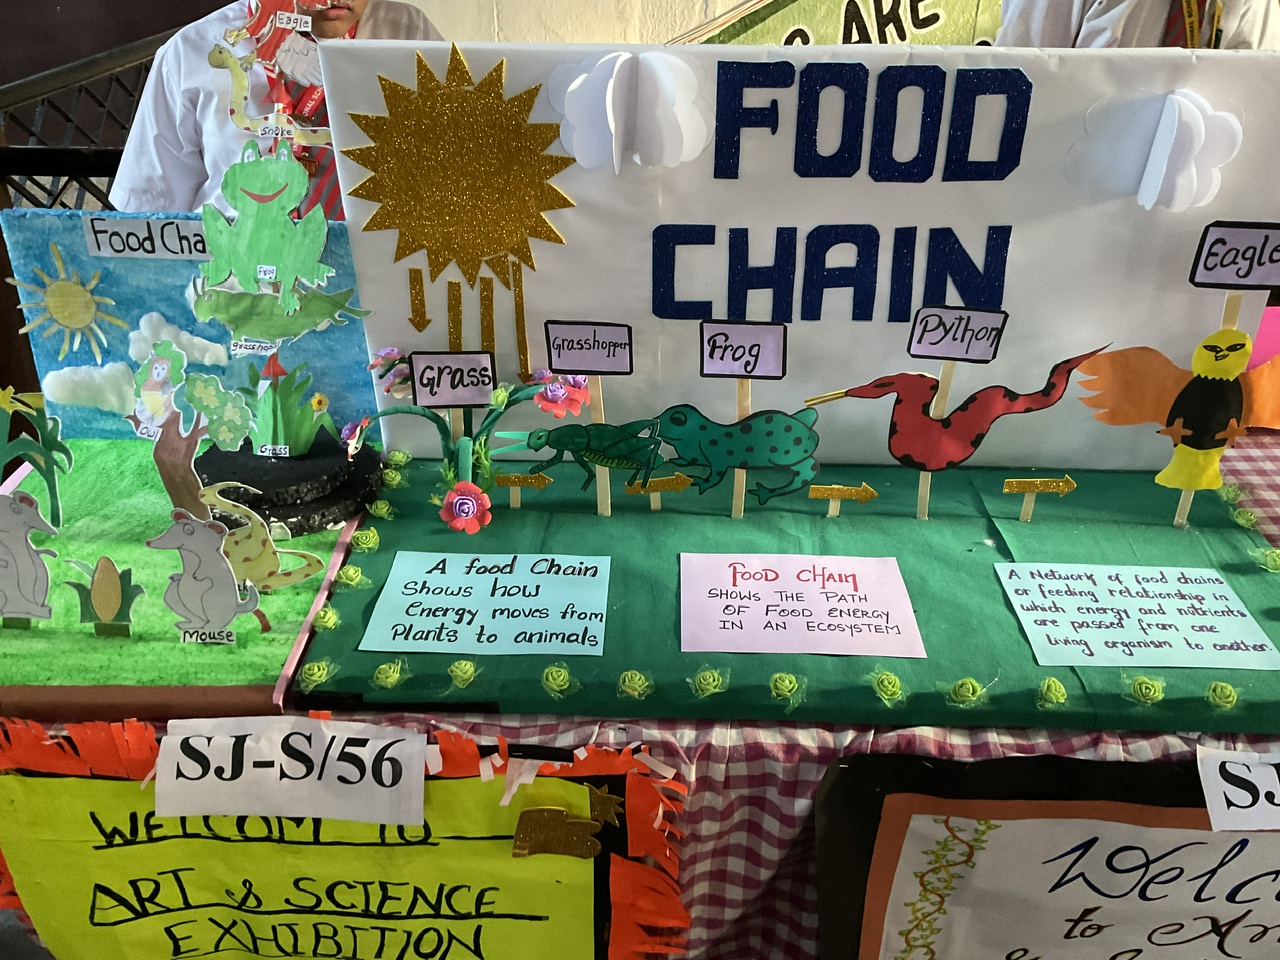 ARE
Eagle
Snake
Frog
grasshop
Grass
Food Cha
Owl
Mouse
FOOD
CHAIN
Grass
Grasshopper
Frog
Python
Eagle
A food Chain
Shows how
Energy moves from
Plants to animals
FOOD CHAIN
SHOWS THE PATH
OF FOOD ENERGY
IN AN ECOSYSTEM
A Network of food chains
or feeding relationship in
which energy and nutrients
are passed from one
living organism to another.
SJ-S/56
WELCOM TO
ART & SCIENCE
EXHIBITION
SJ
Welc
to Ar